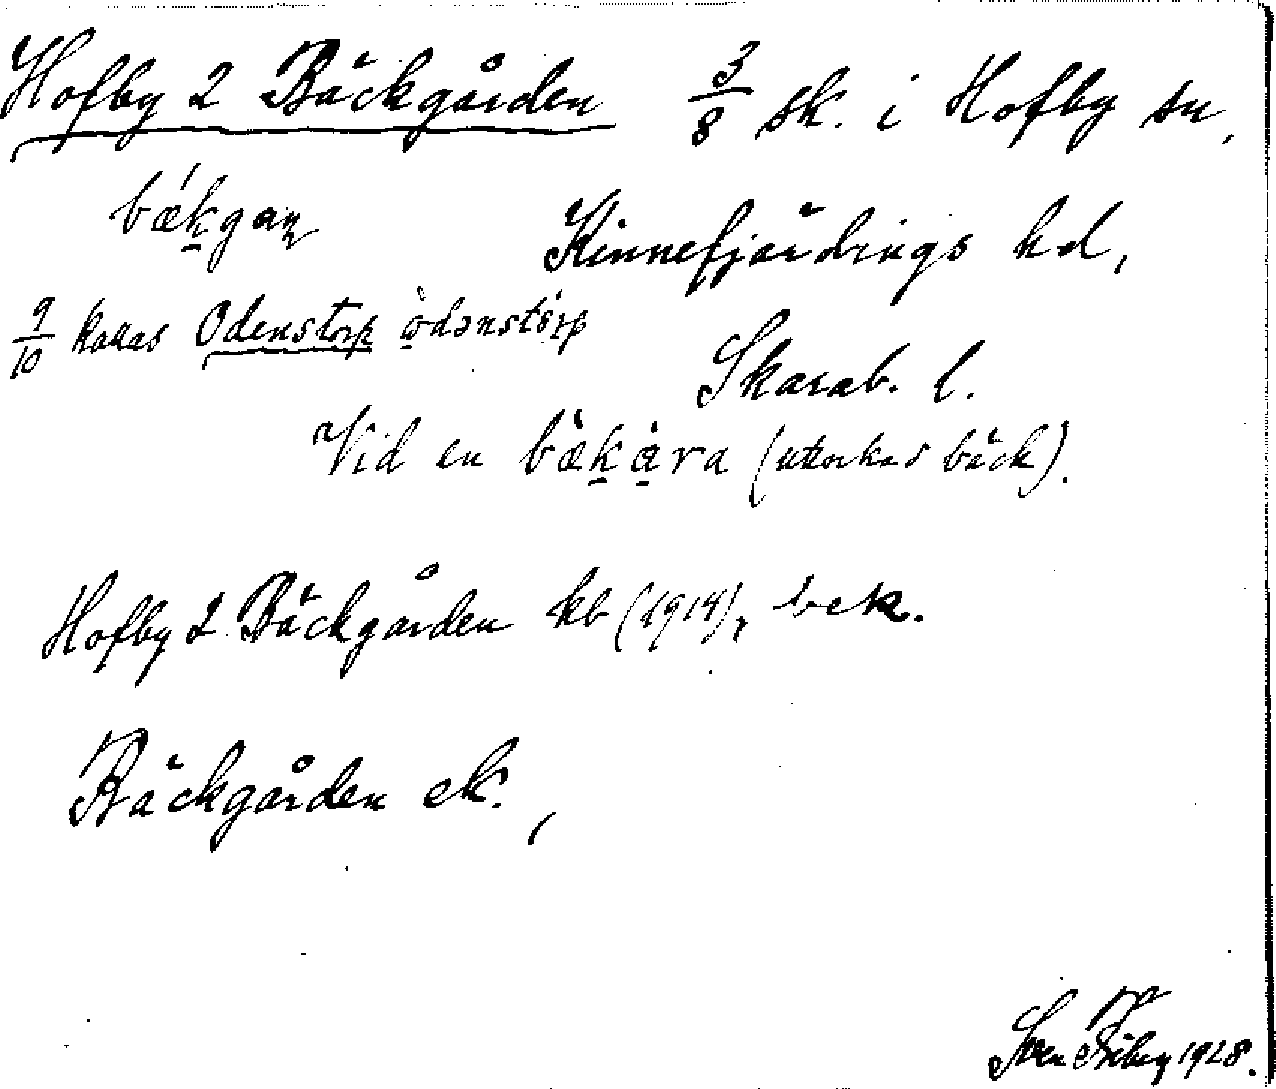 Hofby 2 Bäckgården 3/8 sk. i Hofby sn,
bǽkgaɳ Kinnefjärdings hd,
9/10 kallas Odenstorp òdənstórp
Skarab. l.
Vid en bækàra (uttorkad bäck).
Hofby 2 Bäckgården kb (1914), bek.
Bäckgården ek.,
Sven Friberg 1928.